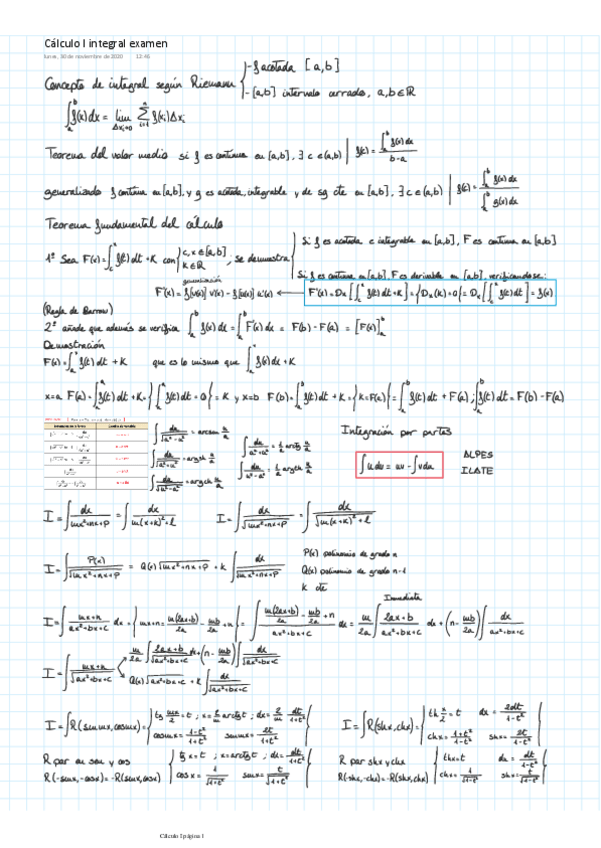 Cálculo I integral examen
lunes, 30 de noviembre de 2020 12:46
Concepto de integral según Riemann { - f acotada [a,b]
- [a,b] intervalo cerrado, a,b∈ℝ
∫_a^b f(x)dx = lim_{Δx_i→0} Σ_{i=1}^n f(k_i)Δx_i
Teorema del valor medio si f es continua en [a,b], ∃ c∈(a,b) | f(c) = ∫_a^b f(x)dx / b-a
generalizado f continua en [a,b], y g es acotada, integrable y de sg cte en [a,b], ∃ c∈(a,b) | f(c) = ∫_a^b f(x)dx / ∫_a^b g(x)dx
Teorema fundamental del cálculo
1º Sea F(x) = ∫_c^x f(t)dt + K con { c,x∈[a,b] K∈ℝ , se demuestra
Si f es acotada e integrable en [a,b], F es continua en [a,b]
Si f es continua en [a,b], F es derivable en [a,b], verificandose:
generalización
F'(x) = f[v(x)] v'(x) - f[u(x)] u'(x) ← F'(x) = Dx[∫_c^x f(t)dt + K] = {Dx(k) = 0} = Dx[∫_c^x f(t)dt] = f(x)
(Regla de Barrow)
2º añade que además se verifica ∫_a^b f(x)dx = ∫_a^b F'(x)dx = F(b) - F(a) = [F(x)]_a^b
Demostración
F(x) = ∫_a^x f(t)dt + K que es lo mismo que ∫_a^x f(x)dx + K
x=a F(a) = ∫_a^a f(t)dt + K = {∫_a^a f(t)dt = 0} = K y x=b F(b) = ∫_a^b f(t)dt + K = {K = F(a)} = ∫_a^b f(t)dt + F(a); ∫_a^b f(t)dt = F(b) - F(a)
∫ du/√(a²-u²) = arcsen u/a
∫ du/(a²+u²) = 1/a arctg u/a
∫ du/√(a²+u²) = argsh u/a
∫ du/(a²-u²) = 1/a argth u/a
∫ du/√(u²-a²) = argch u/a
Integración por partes
∫u dv = uv - ∫v du
ALPES
ILATE
I = ∫ dx/(mx²+nx+p) = ∫ dx/(m(x+k)²+l) I = ∫ dx/√(mx²+nx+p) = ∫ dx/√(m(x+k)²+l)
I = ∫ P(x)/√(mx²+nx+p) = Q(x)√(mx²+nx+p) + K ∫ dx/√(mx²+nx+p)
P(x) polinomio de grado n
Q(x) polinomio de grado n-1
K cte
Inmediata
I = ∫ (mx+n)/(ax²+bx+c) dx = {mx+n = m(2ax+b)/2a - mb/2a + n} = ∫ (m(2ax+b)/2a - mb/2a + n)/(ax²+bx+c) dx = m/2a ∫ (2ax+b)/(ax²+bx+c) dx + (n - mb/2a) ∫ dx/(ax²+bx+c)
I = ∫ (mx+n)/√(ax²+bx+c)
m/2a ∫ (2ax+b)/√(ax²+bx+c) dx + (n - mb/2a) ∫ dx/√(ax²+bx+c)
Q(x)√(ax²+bx+c) + K ∫ dx/√(ax²+bx+c)
I = ∫R(sinmx, cosmx) = { tg mx/2 = t ; x = 2/m arctg t ; dx = 2/m dt/(1+t²)
cosmx = (1-t²)/(1+t²) sinmx = 2t/(1+t²)
I = ∫R(shx, chx) = { th x/2 = t dx = 2dt/(1-t²)
chx = (1+t²)/(1-t²) shx = 2t/(1-t²)
R par en sen y cos
R(-senx, -cosx) = R(senx, cosx)
tg x = t ; x = arctg t ; dx = dt/(1+t²)
cos x = 1/√(1+t²) sinx = t/√(1+t²)
R par shx y chx
R(-shx, -chx) = R(shx, chx)
thx = t dx = dt/(1-t²)
chx = 1/√(1-t²) shx = t/√(1-t²)
Cálculo I página 1